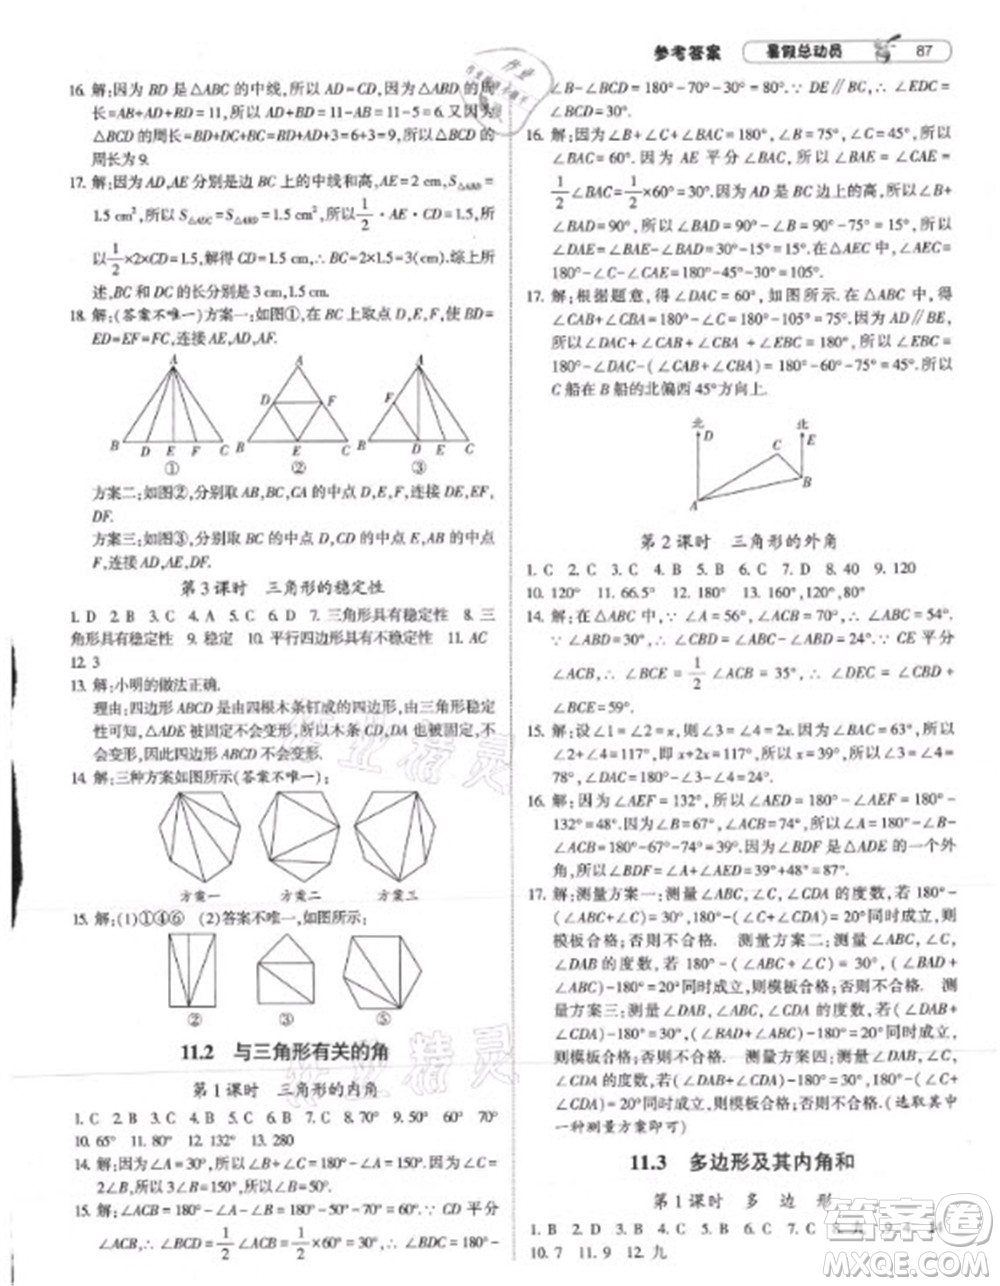 参考答案 暑假总动员 87
16. 解:因为 BD 是△ABC 的中线,所以 AD=CD.因为△ABD 的周
长=AB+AD+BD=11,所以 AD+BD=11-5=6.又因为
△BCD 的周长=BC+BD+CD=BC+BD+AD=3+6=9,所以△BCD 的
周长为 9.
17. 解:因为 AD,AE 分别是边 BC 上的中线和高,AE=2 cm,S△ABD=
1.5 cm²,所以 S△ADC=S△ABD=1.5 cm².所以1/2·AE·CD=1.5,所
以1/2×2×CD=1.5,解得 CD=1.5 cm,∴BC=2CD=3 cm.综上所
述,BC 和 DC 的长分别是 3 cm 和 1.5 cm.
18. 解:(答案不唯一)方案一:如图①,在 BC 上取点 D,E,F,使 BD=
ED=EF=FC,连接 AE,AD,AF.
A B D E F C ①
A D F B E C ②
A F B D E C ③
方案二:如图②,分别取 AB,BC,CA 的中点 D,E,F,连接 DE,EF,
DF.
方案三:如图③,分别取 BC 的中点 D,CD 的中点 E,AB 的中点
F,连接 AD,AE,DF.
第 3 课时 三角形的稳定性
1. D 2. D 3. B 4. A 5. C 6. D 7. 三角形具有稳定性 8. 三
角形具有稳定性 9. 稳定 10. 平行四边形具有不稳定性 11. AC
12. 3
13. 解:小明的做法正确.
理由:四边形 ABCD 是由四根木条钉成的四边形,由三角形稳定
性可知,△ABD 被固定不会变形,所以木条 CD,DA 也被固定,不
会变形,因此四边形 ABCD 不会变形.
14. 解:三种方案如图所示(答案不唯一):
方案一 方案二 方案三
15. 解:(1)①④⑥ (2)答案不唯一,如图所示:
② ③ ⑤
11.2 与三角形有关的角
第 1 课时 三角形的内角
1. C 2. B 3. C 4. B 5. B 6. C 7. C 8. 70° 9. 50° 60° 70°
10. 65° 11. 80° 12. 132° 13. 280
14. 解:因为∠A=∠B+15°,∠C+∠B=∠A+15°,所以∠C=30°.因
为∠A+∠B+∠C=180°,所以∠B=67.5°.
15. 解:∵∠ACB=180°-∠A-∠B=180°-70°-50°=60°,CD 平分
∠ACB,∴∠BCD=1/2∠ACB=1/2×60°=30°,∴∠BDC=180°-
∠B-∠BCD=180°-50°-30°=100°.又∵DE∥BC,∴∠EDC=
∠BCD=30°.
16. 解:因为∠B+∠C+∠BAC=180°,∠B=75°,∠C=45°,所以
∠BAC=60°.因为 AE 平分∠BAC,所以∠BAE=∠CAE=
1/2∠BAC=1/2×60°=30°.因为 AD 是 BC 边上的高,所以∠B+
∠BAD=90°,所以∠BAD=90°-∠B=90°-75°=15°,所以
∠DAE=∠BAE-∠BAD=30°-15°=15°.在△AEC 中,∠AEC=
180°-∠C-∠CAE=180°-45°-30°=105°.
17. 解:根据题意,得∠DAC=60°,如图所示.
北 D 北 E C B A
第 2 课时 三角形的外角
1. C 2. C 3. D 4. C 5. B 6. C 7. B 8. 40 9. 120
10. 120° 11. 66.5° 12. 180° 13. 160°,120°,80°
14. 解:在△ABC 中,∵∠A=56°,∠ACB=70°,∴∠ABC=54°.
∵∠ABD=30°,∴∠CBD=∠ABC-∠ABD=24°.∵CE 平分
∠ACB,∴∠BCE=1/2∠ACB=35°,∴∠DEC=∠CBD+
∠BCE=59°.
15. 解:设∠1=∠2=x,则∠4=∠3=∠1+∠2=2x.因为∠BAC=63°,所以
∠2+∠4=117°,即 x+2x=117°,所以 x=39°,所以∠3=∠4=
78°,
16. 解:因为∠AEF=132°,所以∠AED=180°-∠AEF=180°-
132°=48°.因为∠B=67°,∠ACB=74°,所以∠A=180°-∠B-
∠ACB=180°-67°-74°=39°.因为∠BDF 是△ADE 的一个外
角,所以∠BDF=∠A+∠AED=39°+48°=87°.
17. 解:测量方案一:测量∠ABC,∠C,∠CDA 的度数,若 180°-
模板合格;否则不合格. 测量方案二:测量∠ABC,∠C,
∠DAB 的度数,若
成立,则模板合格;否则不合格. 测量方
案三:测量∠DAB,∠ABC,∠CDA 的度数,若
一种测量方案即可)
11.3 多边形及其内角和
第 1 课时 多 边 形
1. B 2. D 3. B 4. C 5. B 6. B 7. C
10. 7 11. 9 12. 九